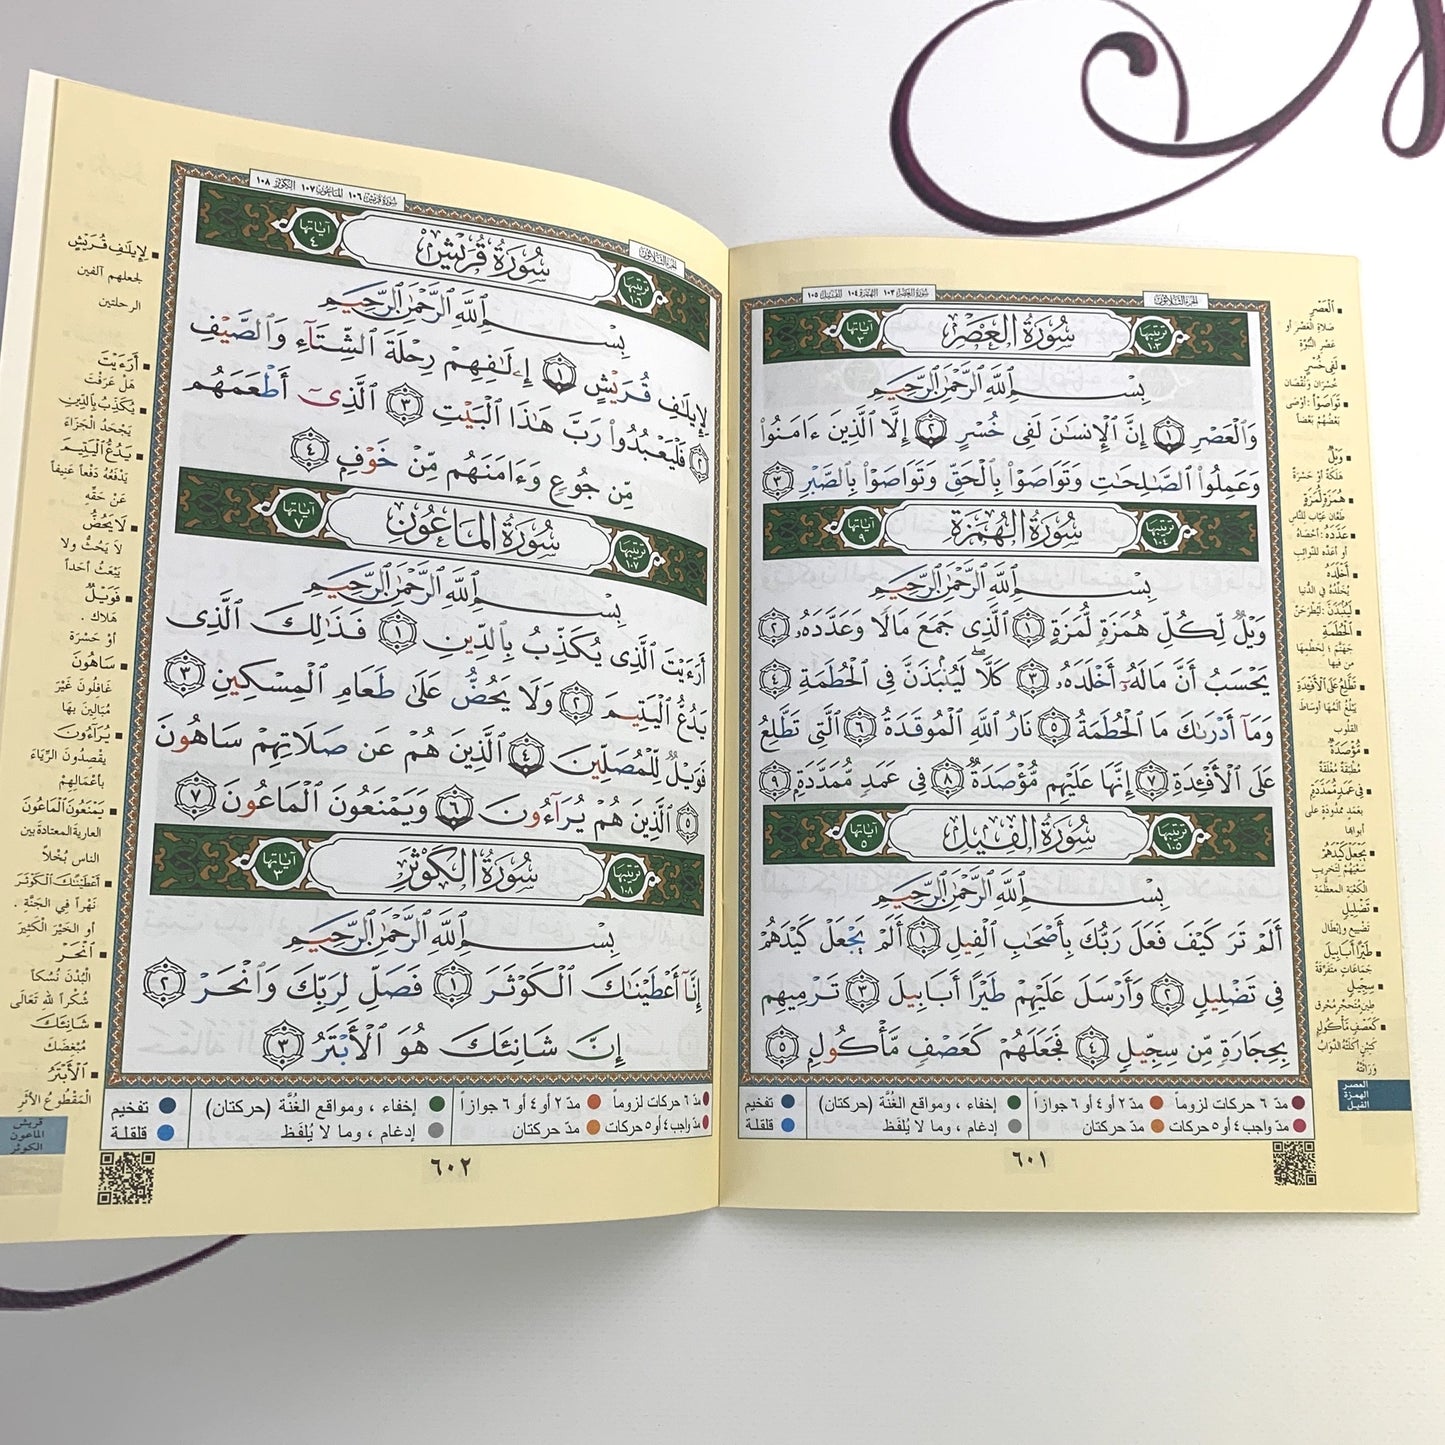 الجزء الثلاثون
سورة العصر ١٠٣ الهمزة ١٠٤ الفيل ١٠٥
ترتيبها ١٠٣ سُورَةُ العَصْرِ آياتها ٣
بِسْمِ ٱللَّهِ ٱلرَّحْمَٰنِ ٱلرَّحِيمِ
وَٱلْعَصْرِ ١ إِنَّ ٱلْإِنسَٰنَ لَفِى خُسْرٍ ٢ إِلَّا ٱلَّذِينَ ءَامَنُوا۟
وَعَمِلُوا۟ ٱلصَّٰلِحَٰتِ وَتَوَاصَوْا۟ بِٱلْحَقِّ وَتَوَاصَوْا۟ بِٱلصَّبْرِ ٣
ترتيبها ١٠٤ سُورَةُ الهُمَزَةِ آياتها ٩
بِسْمِ ٱللَّهِ ٱلرَّحْمَٰنِ ٱلرَّحِيمِ
وَيْلٌ لِّكُلِّ هُمَزَةٍ لُّمَزَةٍ ١ ٱلَّذِى جَمَعَ مَالًا وَعَدَّدَهُۥ ٢
يَحْسَبُ أَنَّ مَالَهُۥٓ أَخْلَدَهُۥ ٣ كَلَّا ۖ لَيُنۢبَذَنَّ فِى ٱلْحُطَمَةِ ٤
وَمَآ أَدْرَىٰكَ مَا ٱلْحُطَمَةُ ٥ نَارُ ٱللَّهِ ٱلْمُوقَدَةُ ٦ ٱلَّتِى تَطَّلِعُ
عَلَى ٱلْأَفْـِٔدَةِ ٧ إِنَّهَا عَلَيْهِم مُّؤْصَدَةٌ ٨ فِى عَمَدٍ مُّمَدَّدَةٍۭ ٩
ترتيبها ١٠٥ سُورَةُ الفِيلِ آياتها ٥
بِسْمِ ٱللَّهِ ٱلرَّحْمَٰنِ ٱلرَّحِيمِ
أَلَمْ تَرَ كَيْفَ فَعَلَ رَبُّكَ بِأَصْحَٰبِ ٱلْفِيلِ ١ أَلَمْ يَجْعَلْ كَيْدَهُمْ
فِى تَضْلِيلٍ ٢ وَأَرْسَلَ عَلَيْهِمْ طَيْرًا أَبَابِيلَ ٣ تَرْمِيهِم
بِحِجَارَةٍ مِّن سِجِّيلٍ ٤ فَجَعَلَهُمْ كَعَصْفٍ مَّأْكُولٍۭ ٥
ٱلْعَصْرِ
صلاة العصر أو
عصر النبوة
لَفِى خُسْرٍ
خسران ونقصان
تَوَاصَوْا۟: أوصى
بعضهم بعضاً
وَيْلٌ
هلكة أو حسرة
هُمَزَةٍ لُّمَزَةٍ
طعان عياب للناس
عَدَّدَهُۥ: أحصاه
أو أعده للنوائب
أَخْلَدَهُۥ
يخلده في الدنيا
لَيُنۢبَذَنَّ: ليطرحن
ٱلْحُطَمَةِ
جهنم؛ لحطمها
من فيها
تَطَّلِعُ عَلَى ٱلْأَفْـِٔدَةِ
يبلغ ألمها أوساط
القلوب
مُّؤْصَدَةٌ
مطبقة مغلقة
فِى عَمَدٍ مُّمَدَّدَةٍۭ
بعمد ممدودة على
أبوابها
يَجْعَلْ كَيْدَهُمْ
سعيهم لتخريب
الكعبة المعظمة
تَضْلِيلٍ
تضييع وإبطال
طَيْرًا أَبَابِيلَ
جماعات متفرقة
سِجِّيلٍ
طين متحجر محرق
كَعَصْفٍ مَّأْكُولٍۭ
كتبن أكلته الدواب
وراثته
العصر
الهمزة
الفيل
مدّ ٦ حركات لزوماً مدّ ٢ أو ٤ أو ٦ جوازاً إخفاء ، ومواقع الغُنَّة (حركتان) تفخيم
مدّ واجب ٤ أو ٥ حركات مدّ حركتان إدغام ، وما لا يُلفَظ قلقلة
٦٠١
الجزء الثلاثون
سورة قريش ١٠٦ الماعون ١٠٧ الكوثر ١٠٨
ترتيبها ١٠٦ سُورَةُ قُرَيْشٍ آياتها ٤
بِسْمِ ٱللَّهِ ٱلرَّحْمَٰنِ ٱلرَّحِيمِ
لِإِيلَٰفِ قُرَيْشٍ ١ إِۦلَٰفِهِمْ رِحْلَةَ ٱلشِّتَآءِ وَٱلصَّيْفِ
٢ فَلْيَعْبُدُوا۟ رَبَّ هَٰذَا ٱلْبَيْتِ ٣ ٱلَّذِىٓ أَطْعَمَهُم
مِّن جُوعٍ وَءَامَنَهُم مِّنْ خَوْفٍۭ ٤
ترتيبها ١٠٧ سُورَةُ المَاعُونِ آياتها ٧
بِسْمِ ٱللَّهِ ٱلرَّحْمَٰنِ ٱلرَّحِيمِ
أَرَءَيْتَ ٱلَّذِى يُكَذِّبُ بِٱلدِّينِ ١ فَذَٰلِكَ ٱلَّذِى
يَدُعُّ ٱلْيَتِيمَ ٢ وَلَا يَحُضُّ عَلَىٰ طَعَامِ ٱلْمِسْكِينِ ٣
فَوَيْلٌ لِّلْمُصَلِّينَ ٤ ٱلَّذِينَ هُمْ عَن صَلَاتِهِمْ سَاهُونَ
٥ ٱلَّذِينَ هُمْ يُرَآءُونَ ٦ وَيَمْنَعُونَ ٱلْمَاعُونَ ٧
ترتيبها ١٠٨ سُورَةُ الكَوْثَرِ آياتها ٣
بِسْمِ ٱللَّهِ ٱلرَّحْمَٰنِ ٱلرَّحِيمِ
إِنَّآ أَعْطَيْنَٰكَ ٱلْكَوْثَرَ ١ فَصَلِّ لِرَبِّكَ وَٱنْحَرْ ٢
إِنَّ شَانِئَكَ هُوَ ٱلْأَبْتَرُ ٣
لِإِيلَٰفِ قُرَيْشٍ
لجعلهم آلفين
الرحلتين
أَرَءَيْتَ
هل عرفت
يُكَذِّبُ بِٱلدِّينِ
يجحد الجزاء
يَدُعُّ ٱلْيَتِيمَ
يدفعه دفعاً عنيفاً
عن حقه
لَا يَحُضُّ
لا يحث ولا
يبعث أحداً
فَوَيْلٌ
هلاك .
أو حسرة
سَاهُونَ
غافلون غير
مبالين بها
يُرَآءُونَ
يقصدون الرياء
بأعمالهم
يَمْنَعُونَ ٱلْمَاعُونَ
العارية المعتادة بين
الناس بخلاً
أَعْطَيْنَٰكَ ٱلْكَوْثَرَ
نهراً في الجنة .
أو الخير الكثير
ٱنْحَرْ
البدن نسكاً
شكراً لله تعالى
شَانِئَكَ
مبغضك
ٱلْأَبْتَرُ
المقطوع الأثر
قريش
الماعون
الكوثر
مدّ ٦ حركات لزوماً مدّ ٢ أو ٤ أو ٦ جوازاً إخفاء ، ومواقع الغُنَّة (حركتان) تفخيم
مدّ واجب ٤ أو ٥ حركات مدّ حركتان إدغام ، وما لا يُلفَظ قلقلة
٦٠٢